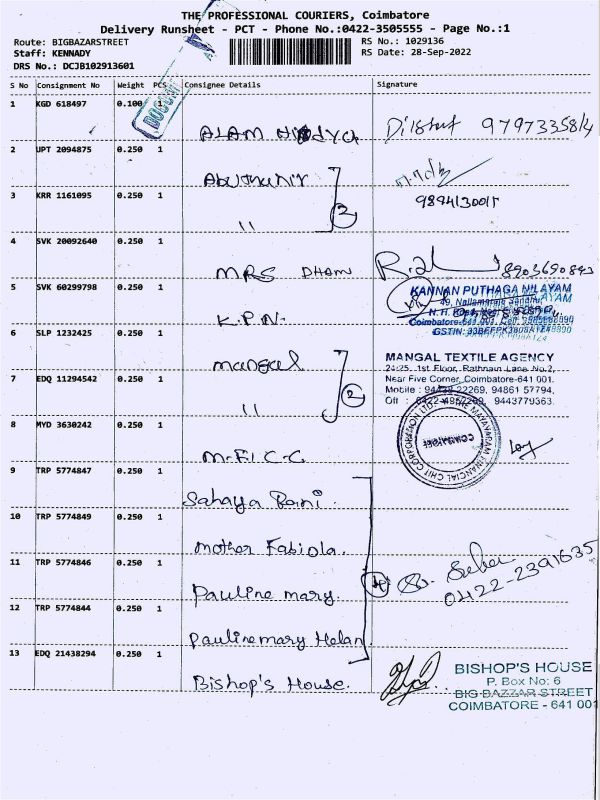 THE PROFESSIONAL COURIERS, Coimbatore
Delivery Runsheet - PCT - Phone No.:0422-3505555 - Page No.:1
Route: BIGBAZARSTREET
RS No.: 1029136
Staff: KENNADY
RS Date: 28-Sep-2022
DRS No.: DCJB102913601
S No Consignment No Weight PCS Consignee Details Signature
1 KGD 618497 0.100 1
DOCUMENT
ALAM
2 UPT 2094875 0.250 1
3 KRR 1161095 0.250 1
"
2
9894130011
4 SVK 20092640 0.250 1
MRS DHAM
5 SVK 60299798 0.250 1
K.P.N.
KANNAN PUTHAGA NILAYAM
6 SLP 1232425 0.250 1
Mangal
MANGAL TEXTILE AGENCY
24/25, 1st Floor, Rathnam Lane No.2,
7 EDQ 11294542 0.250 1
"
2
Near Five Corner, Coimbatore-641 001.
Mobile : 94433 22269, 94861 57794,
Off : 0422-4952269, 9443779363.
8 MYD 3630242 0.250 1
M.F.I.C.C
THE MAYAVARAM FINANCIAL CHIT CORPORATION LTD.
COIMBATORE
9 TRP 5774847 0.250 1
Sahaya Rani.
10 TRP 5774849 0.250 1
Mother Fabiola.
11 TRP 5774846 0.250 1
Pauline mary.
4
0422-2391635
12 TRP 5774844 0.250 1
Paulinemary Helan
13 EDQ 21438294 0.250 1
Bishop's House.
BISHOP'S HOUSE
P. Box No: 6
BIG BAZZAR STREET
COIMBATORE - 641 001